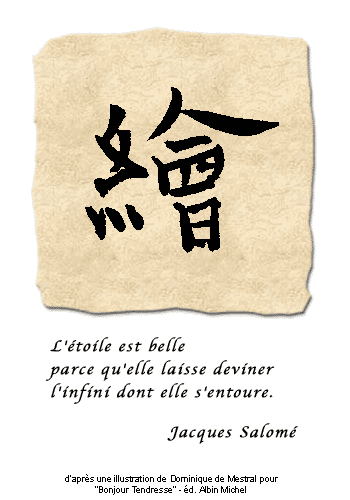 繪
L'étoile est belle
parce qu'elle laisse deviner
l'infini dont elle s'entoure.
Jacques Salomé
d'après une illustration de Dominique de Mestral pour
"Bonjour Tendresse" - éd. Albin Michel